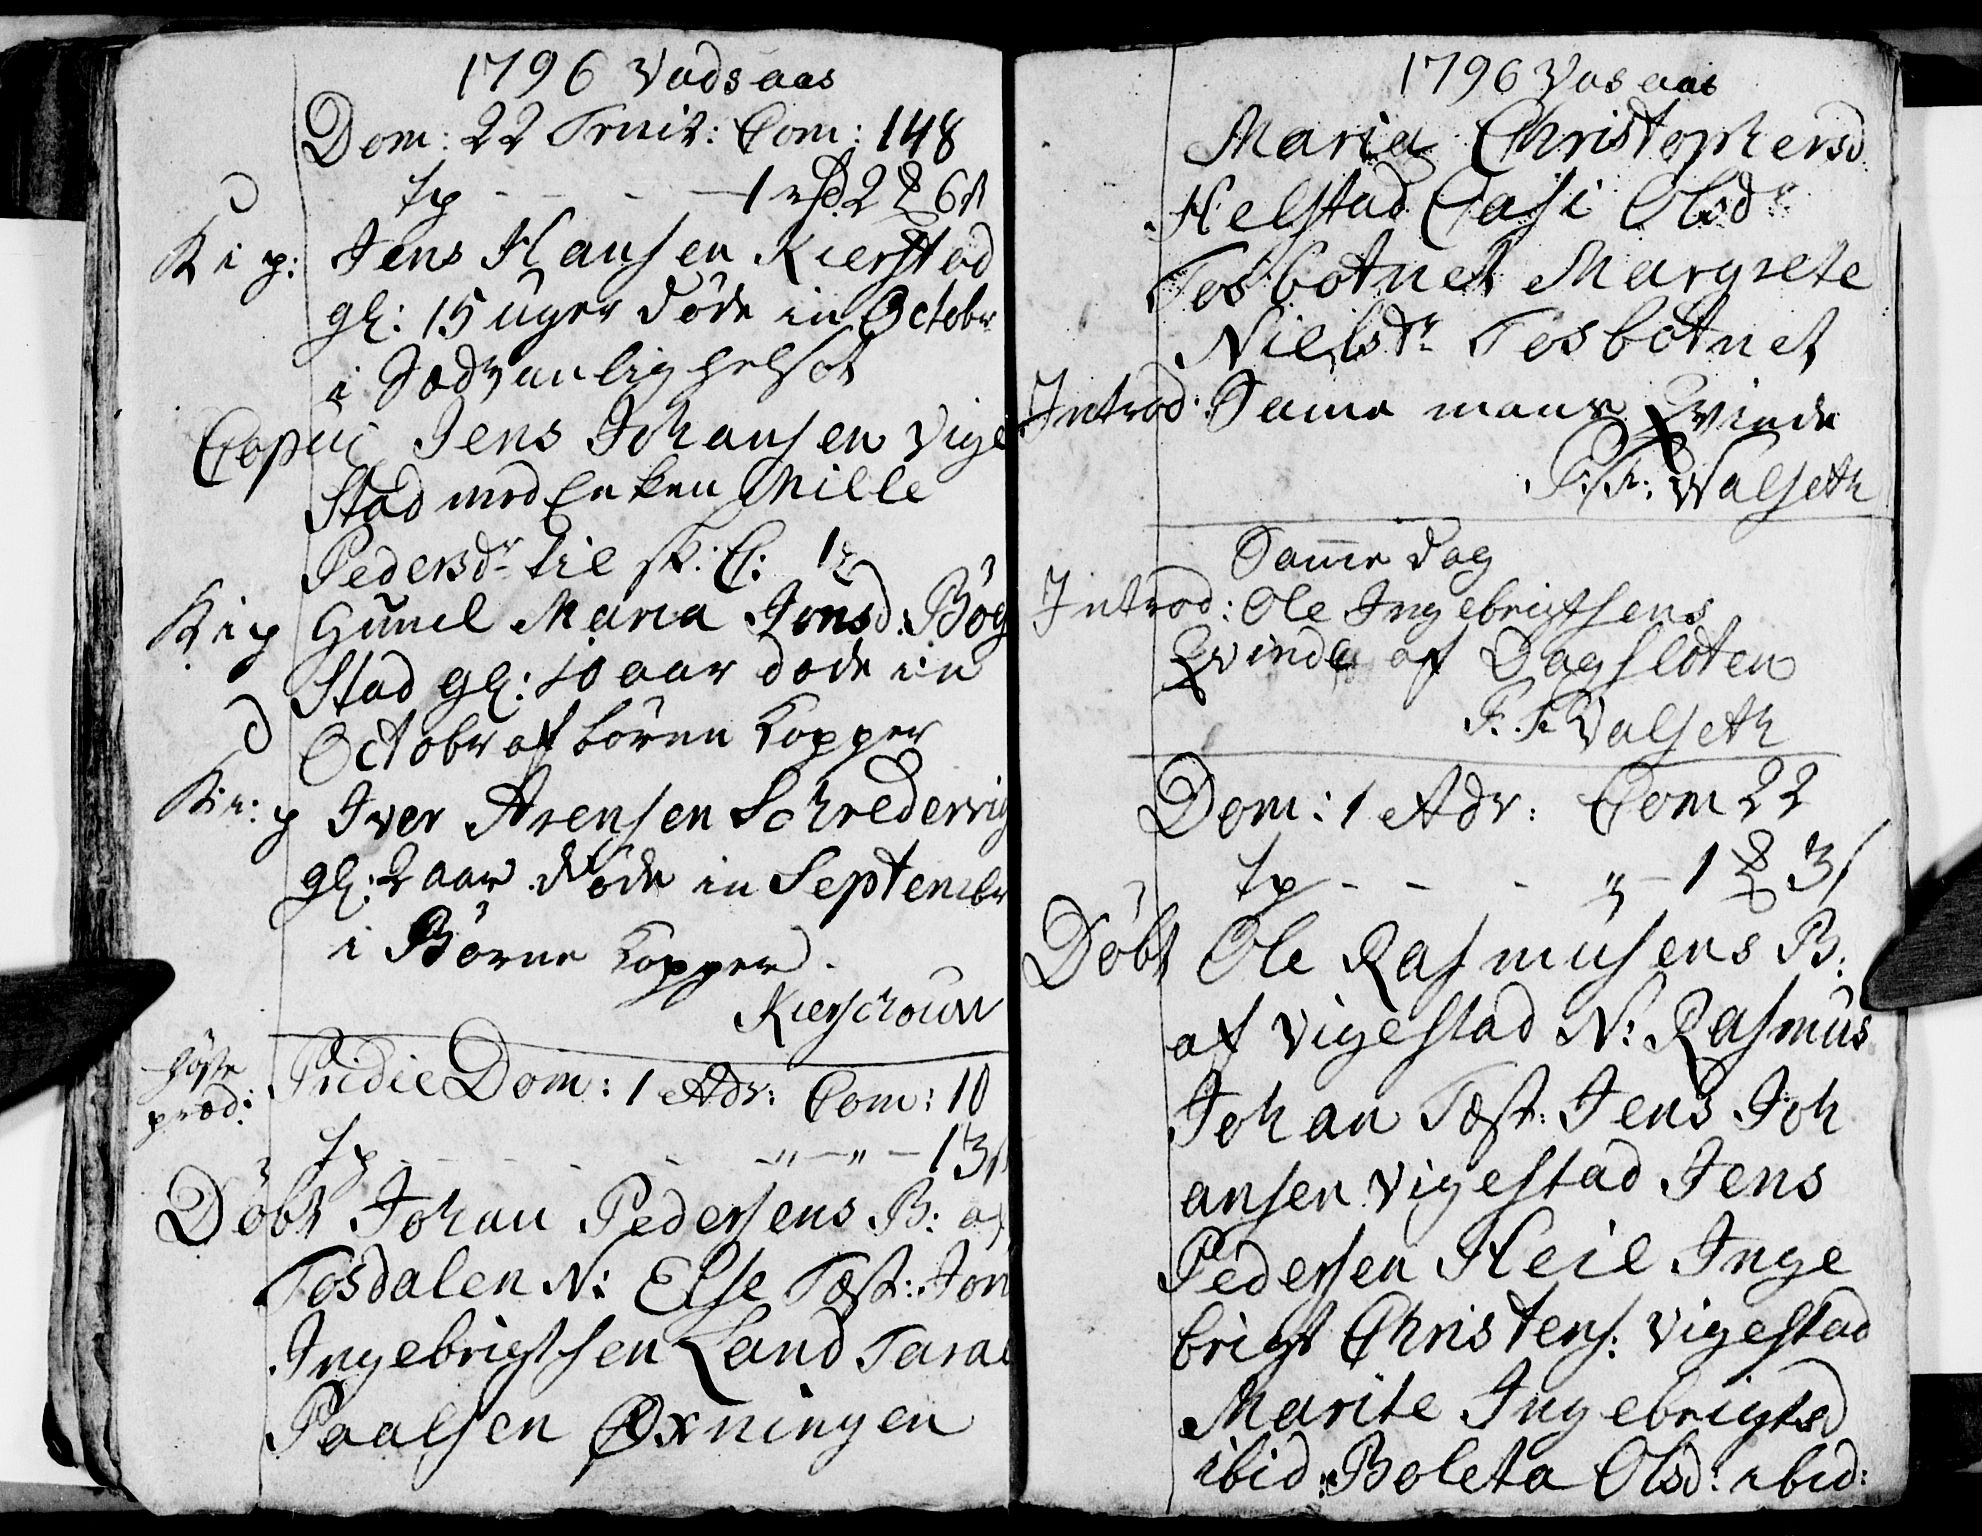 1796 Vadsaas
Dom: 22 Trinit: Com: 148
Tp - - - - 1 rd 2 6 s
K i p: Jens Hansen Kierstad
gl: 15 uger døde in Octobr
i Sædvanlig helsot
Copul Jens Johansen Vige
stad med Enken Mille
Pedersdr til sk: E: 12
K i p Gunil Maria Jonsd: Bøg
stad gl: 10 aar døde in
Octobr af børne Kopper
K: i: p Iver Arensen Schredervig
gl: 2 aar døde in Septembr
i Børne Kopper
Kierschouw
Høste
præd: Pridie Dom: 1 Adv: Com: 10
Tp - - - - - " - " - 13 s
Døbt Johan Pedersens B: af
Tosdalen N: Else Test: Jon
Ingebrigtsen Land Taral
Paalsen Øxningen
1796 Vasaas
Maria Christophersd
Helstad Casi Olsdr
Tosbotnet Margrete
Nielsdr Tosbotnet
Introd: Same mans Qvinde
F: Walseth
Samme Dag
Introd: Ole Ingebrigtsens
Qvinde af Dagsloten
F. Valseth
Dom: 1 Adv: Com 22
Tp - - - " - 1 3 s
Døbt Ole Rasmusens B:
af Vigestad N: Rasmus
Johan Test: Jens Joh
ansen Vigestad Jens
Pedersen Heil Inge
brigt Christens: Vigestad
Marite Ingebrigtsd
ibid: Boleta Olsd: ibid: